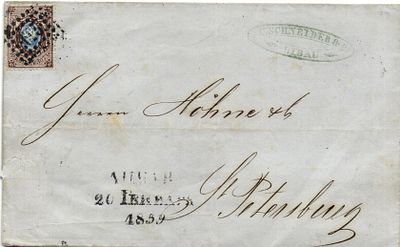 SCHNEIDER &
LIBAU
Herren Höhne & C
ЛИБАВА
20 ГЕНВАРЯ
1859
St Petersburg